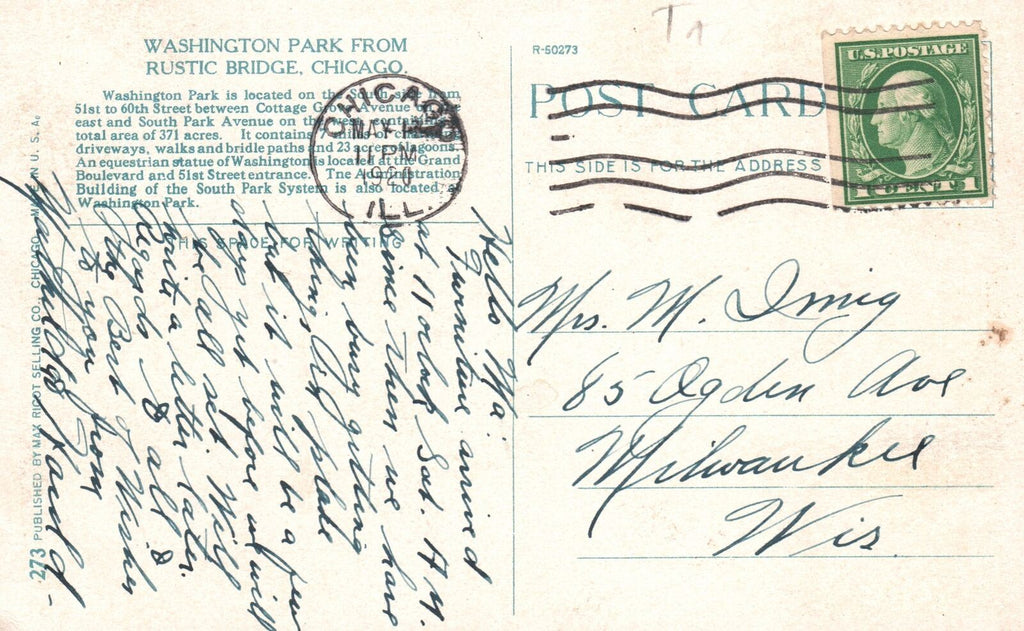 WASHINGTON PARK FROM
RUSTIC BRIDGE, CHICAGO.
Washington Park is located on the South side from
51st to 60th Street between Cottage Grove Avenue on the
east and South Park Avenue on the west, containing a
total area of 371 acres. It contains 7 miles of
driveways, walks and bridle paths and 23 acres lagoons.
An equestrian statue of Washington is located at the Grand
Boulevard and 51st Street entrance. The Administration
Building of the South Park System is also located at
Washington Park.
THIS SPACE FOR WRITING
273 PUBLISHED BY MAX RIGOT SELLING CO., CHICAGO. MADE IN U. S. A.
CHICAGO
11 PM
1920
ILL.
Hello Ma:
Furniture arrived
at 11 oclock Sat. A.M.
Since then we have
been busy getting
things in place
but it will be a few
days yet before we will
be all set. Will
write a letter later.
Regards to all &
the Best of Wishes
to you from
R-50273
POST CARD
THIS SIDE IS FOR THE ADDRESS
U.S. POSTAGE
1 CENT 1
Mrs. M. Imig
85 Ogden Ave
Milwaukee
Wis.